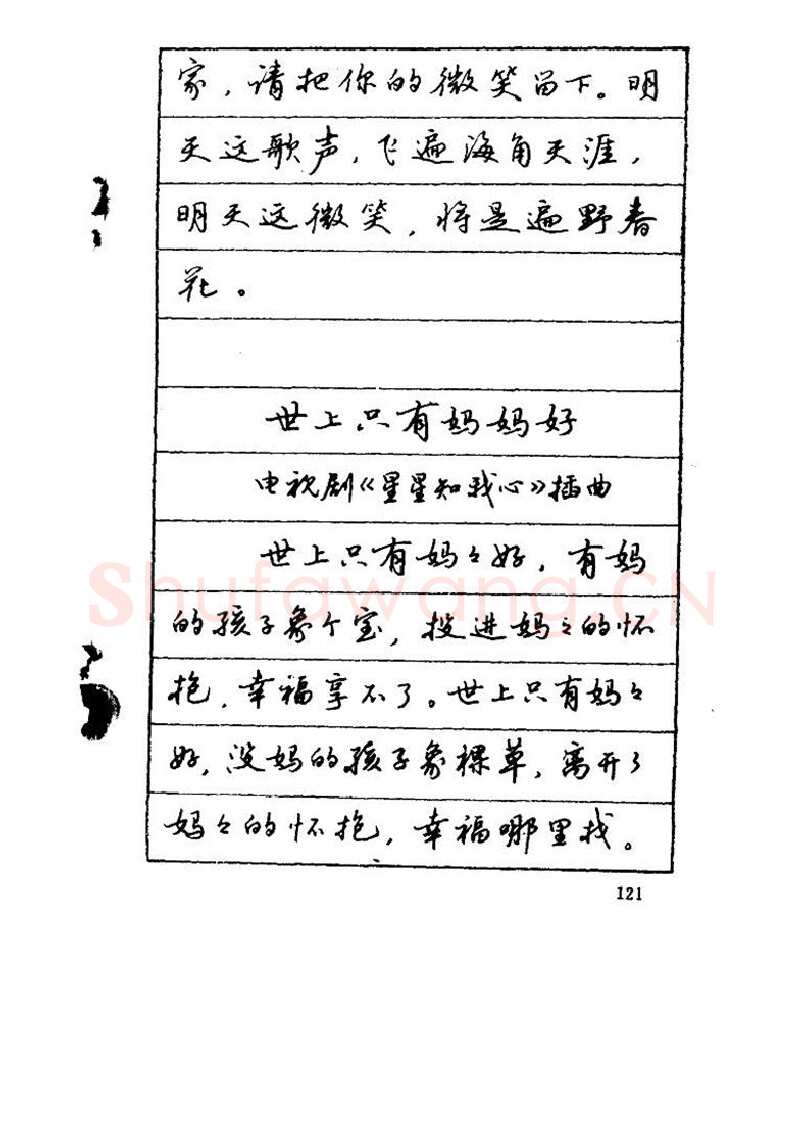 家，请把你的微笑留下。明
天这歌声，飞遍海角天涯，
明天这微笑，将是遍野春
花。
世上只有妈妈好
电视剧《星星知我心》插曲
世上只有妈々好，有妈
的孩子象个宝，投进妈々的怀
抱，幸福享不了。世上只有妈々
好，没妈的孩子象棵草，离开了
妈々的怀抱，幸福哪里找。
121
Shufawang.CN